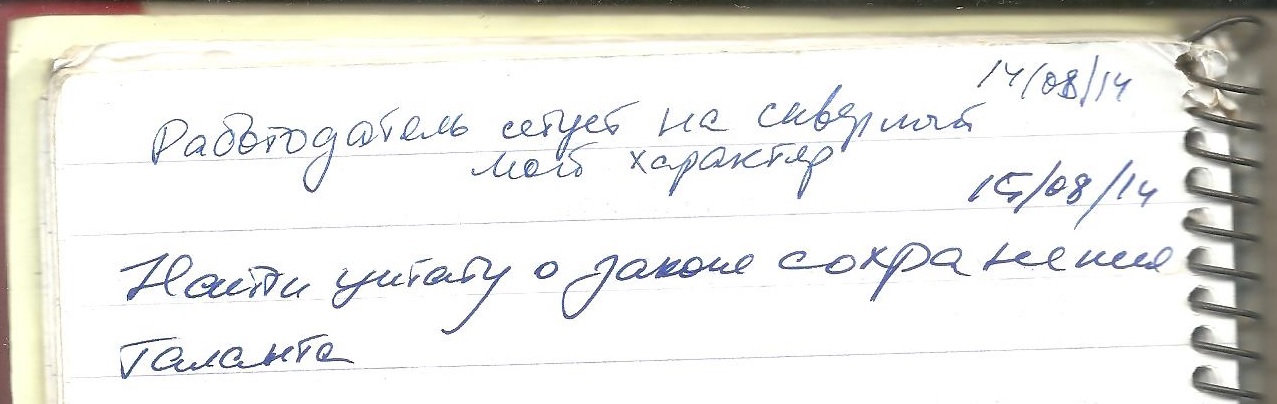 14/08/14
Работодатель сетует на скверный
мой характер
15/08/14
Найти цитату о законе сохранения
таланта